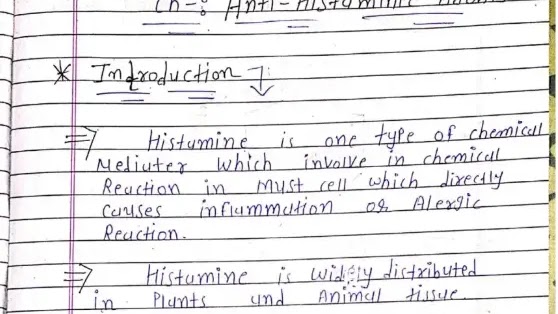 Ch-: Anti-Histaminic
* Introduction
⇒ Histamine is one type of chemical
Mediater which involve in chemical
Reaction in Must cell which directly
causes inflammation or Alergic
Reaction.
⇒ Histamine is widely distributed
in Plants and Animal tissue.